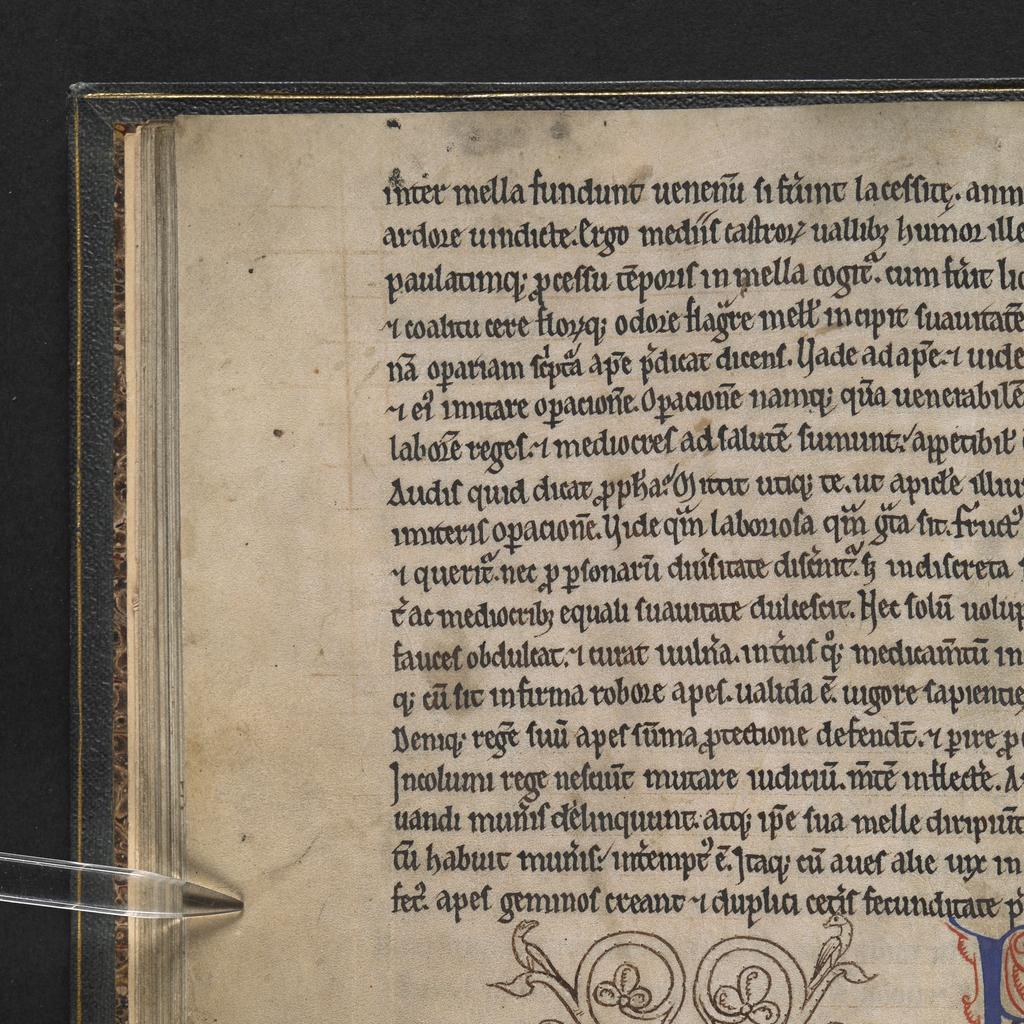 inter mella fundunt uenenū si fůint lacessitę. anim
ardore uindicte. Ergo mediis castroꝝ uallibꝫ humor ille
paulatimqꝫ ꝓcessu tēporis in mella cogitᵃ. cum fůit liq
⁊ coalitu cere floꝝqꝫ odore flagͣre mełł incipit suauitatē
nā opariam sc͛ptᵃ apē p͛dicat dicens. Uade ad apē. ⁊ uide
⁊ ei⁹ imitare oꝑacionē. Oꝑacionē namqꝫ q̄a uenerabilē
laborē reges. ⁊ mediocres ad salutē sumunt. appetibił
Audis quid dicat ꝓpħa. Mittit utiqꝫ te. ut apicłe illiu
imiteris oꝑacionē. Uide qm̄ laboriosa qm̄ gͣta sit. fruct⁹
⁊ querit̄. nec ꝓ ꝑsonarū diu͛sitate disc͛nitᵃ. sꝫ indiscreta
t͛ ac mediocribꝫ equali suauitate dulcescit. Nec solū uolup
fauces obdulcat. ⁊ curat uuln͛a. int͛nis qͦqꝫ medicam̄tū in
qꝫ cū sit infirma robore apes. ualida ē. uigore sapientię
Deniqꝫ regē suū apes sūma ꝓtectione defendt̄. ⁊ ꝑire ꝓ
Incolumi rege nesciūt mutare iudiciū. m̄tē inflecte͛. A
uandi mun͛is delinquunt. atqꝫ ip̄e sua melle diripiūt
tū habuit mun͛is. int͛empt⁹ ē. Itaqꝫ cū aues alie uix in
fet⁹. apes geminos creant ⁊ duplici cet͛is fecunditate p͛